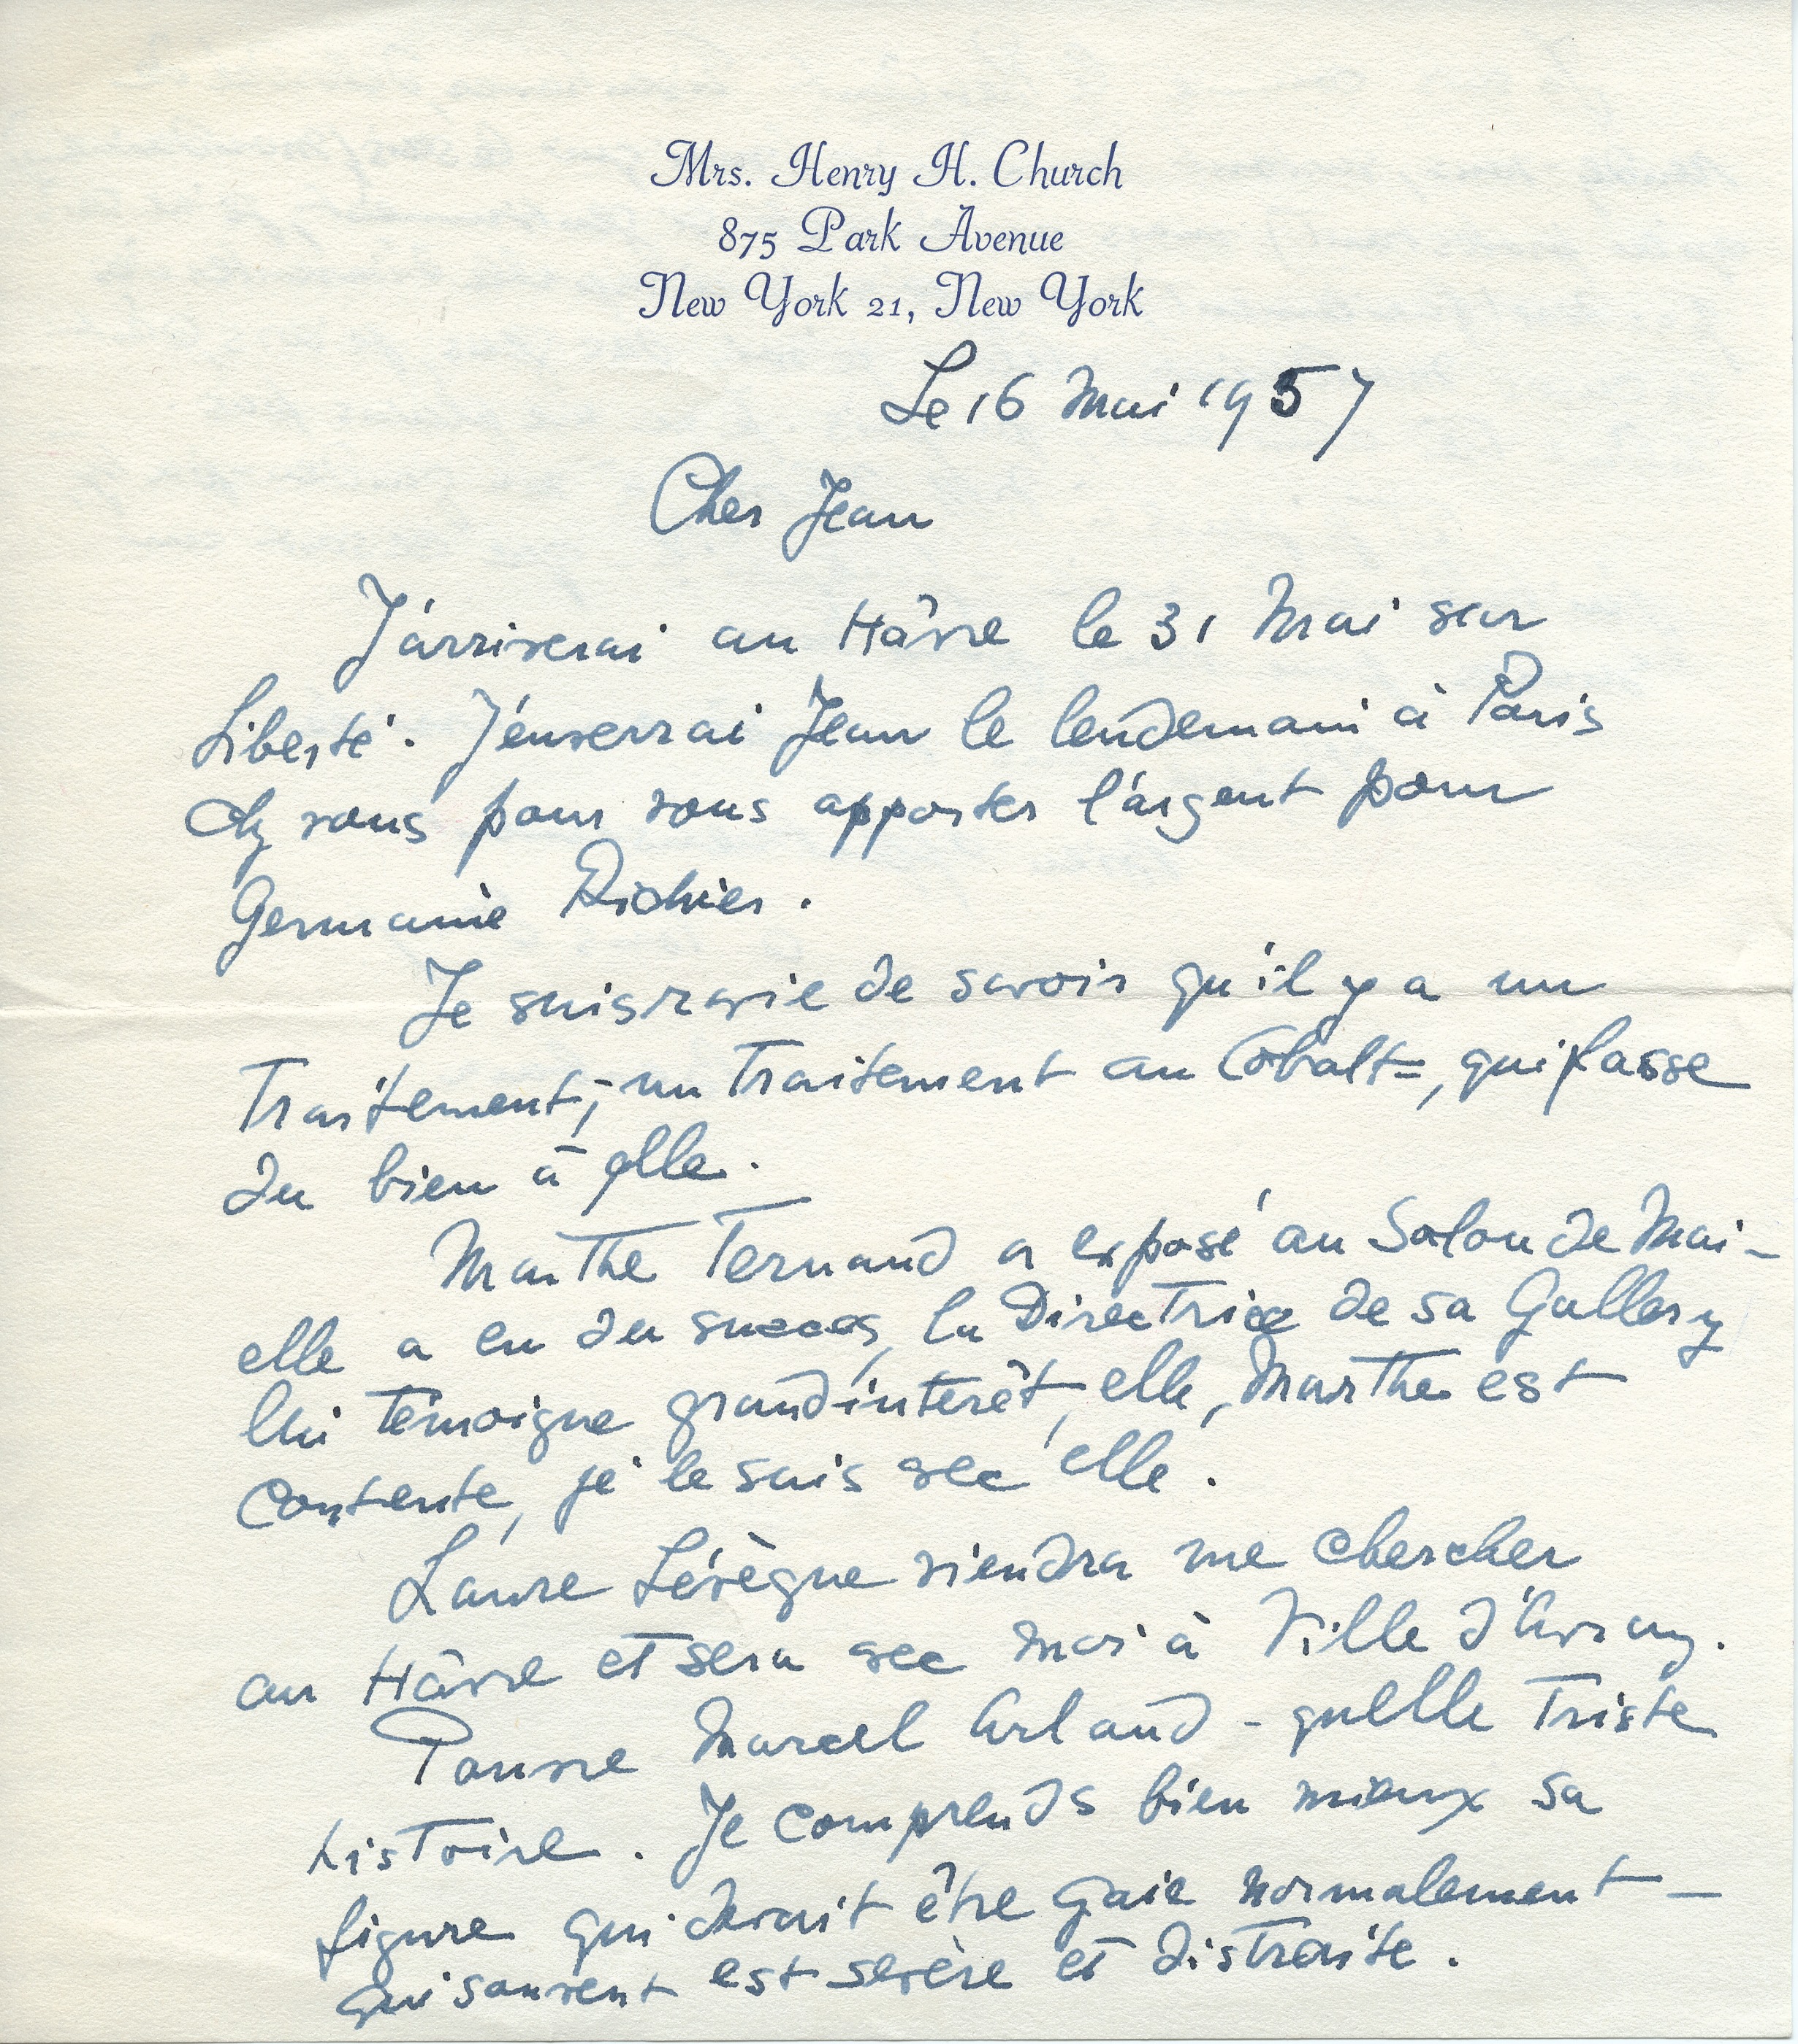 Mrs. Henry H. Church
875 Park Avenue
New York 21, New York
Le 16 Mai 1957
Cher Jean
J'arriverai au Hâvre le 31 Mai sur
Liberté. J'enverrai Jean le lendemain à Paris
chz vous pour vous apporter l'argent pour
Germaine Richier.
Je suis ravie de savoir qu'il y a un
Traitement, un Traitement au Cobalt=, qui fasse
du bien à elle.
Marthe Fernand a exposé au Salon de Mai -
elle a eu du succes, la Directrice de sa Gallery
lui témoigne grand intérêt, elle, Marthe est
contente, je le suis vec elle.
Laure Lévèque viendra me chercher
au Hâvre et sera vec moi à Ville d'Avray.
Pauvre Marcel Arland - quelle Triste
histoire. Je comprends bien mieux sa
figure qui devait être gaie normalement -
qui souvent est sevère et distraite.